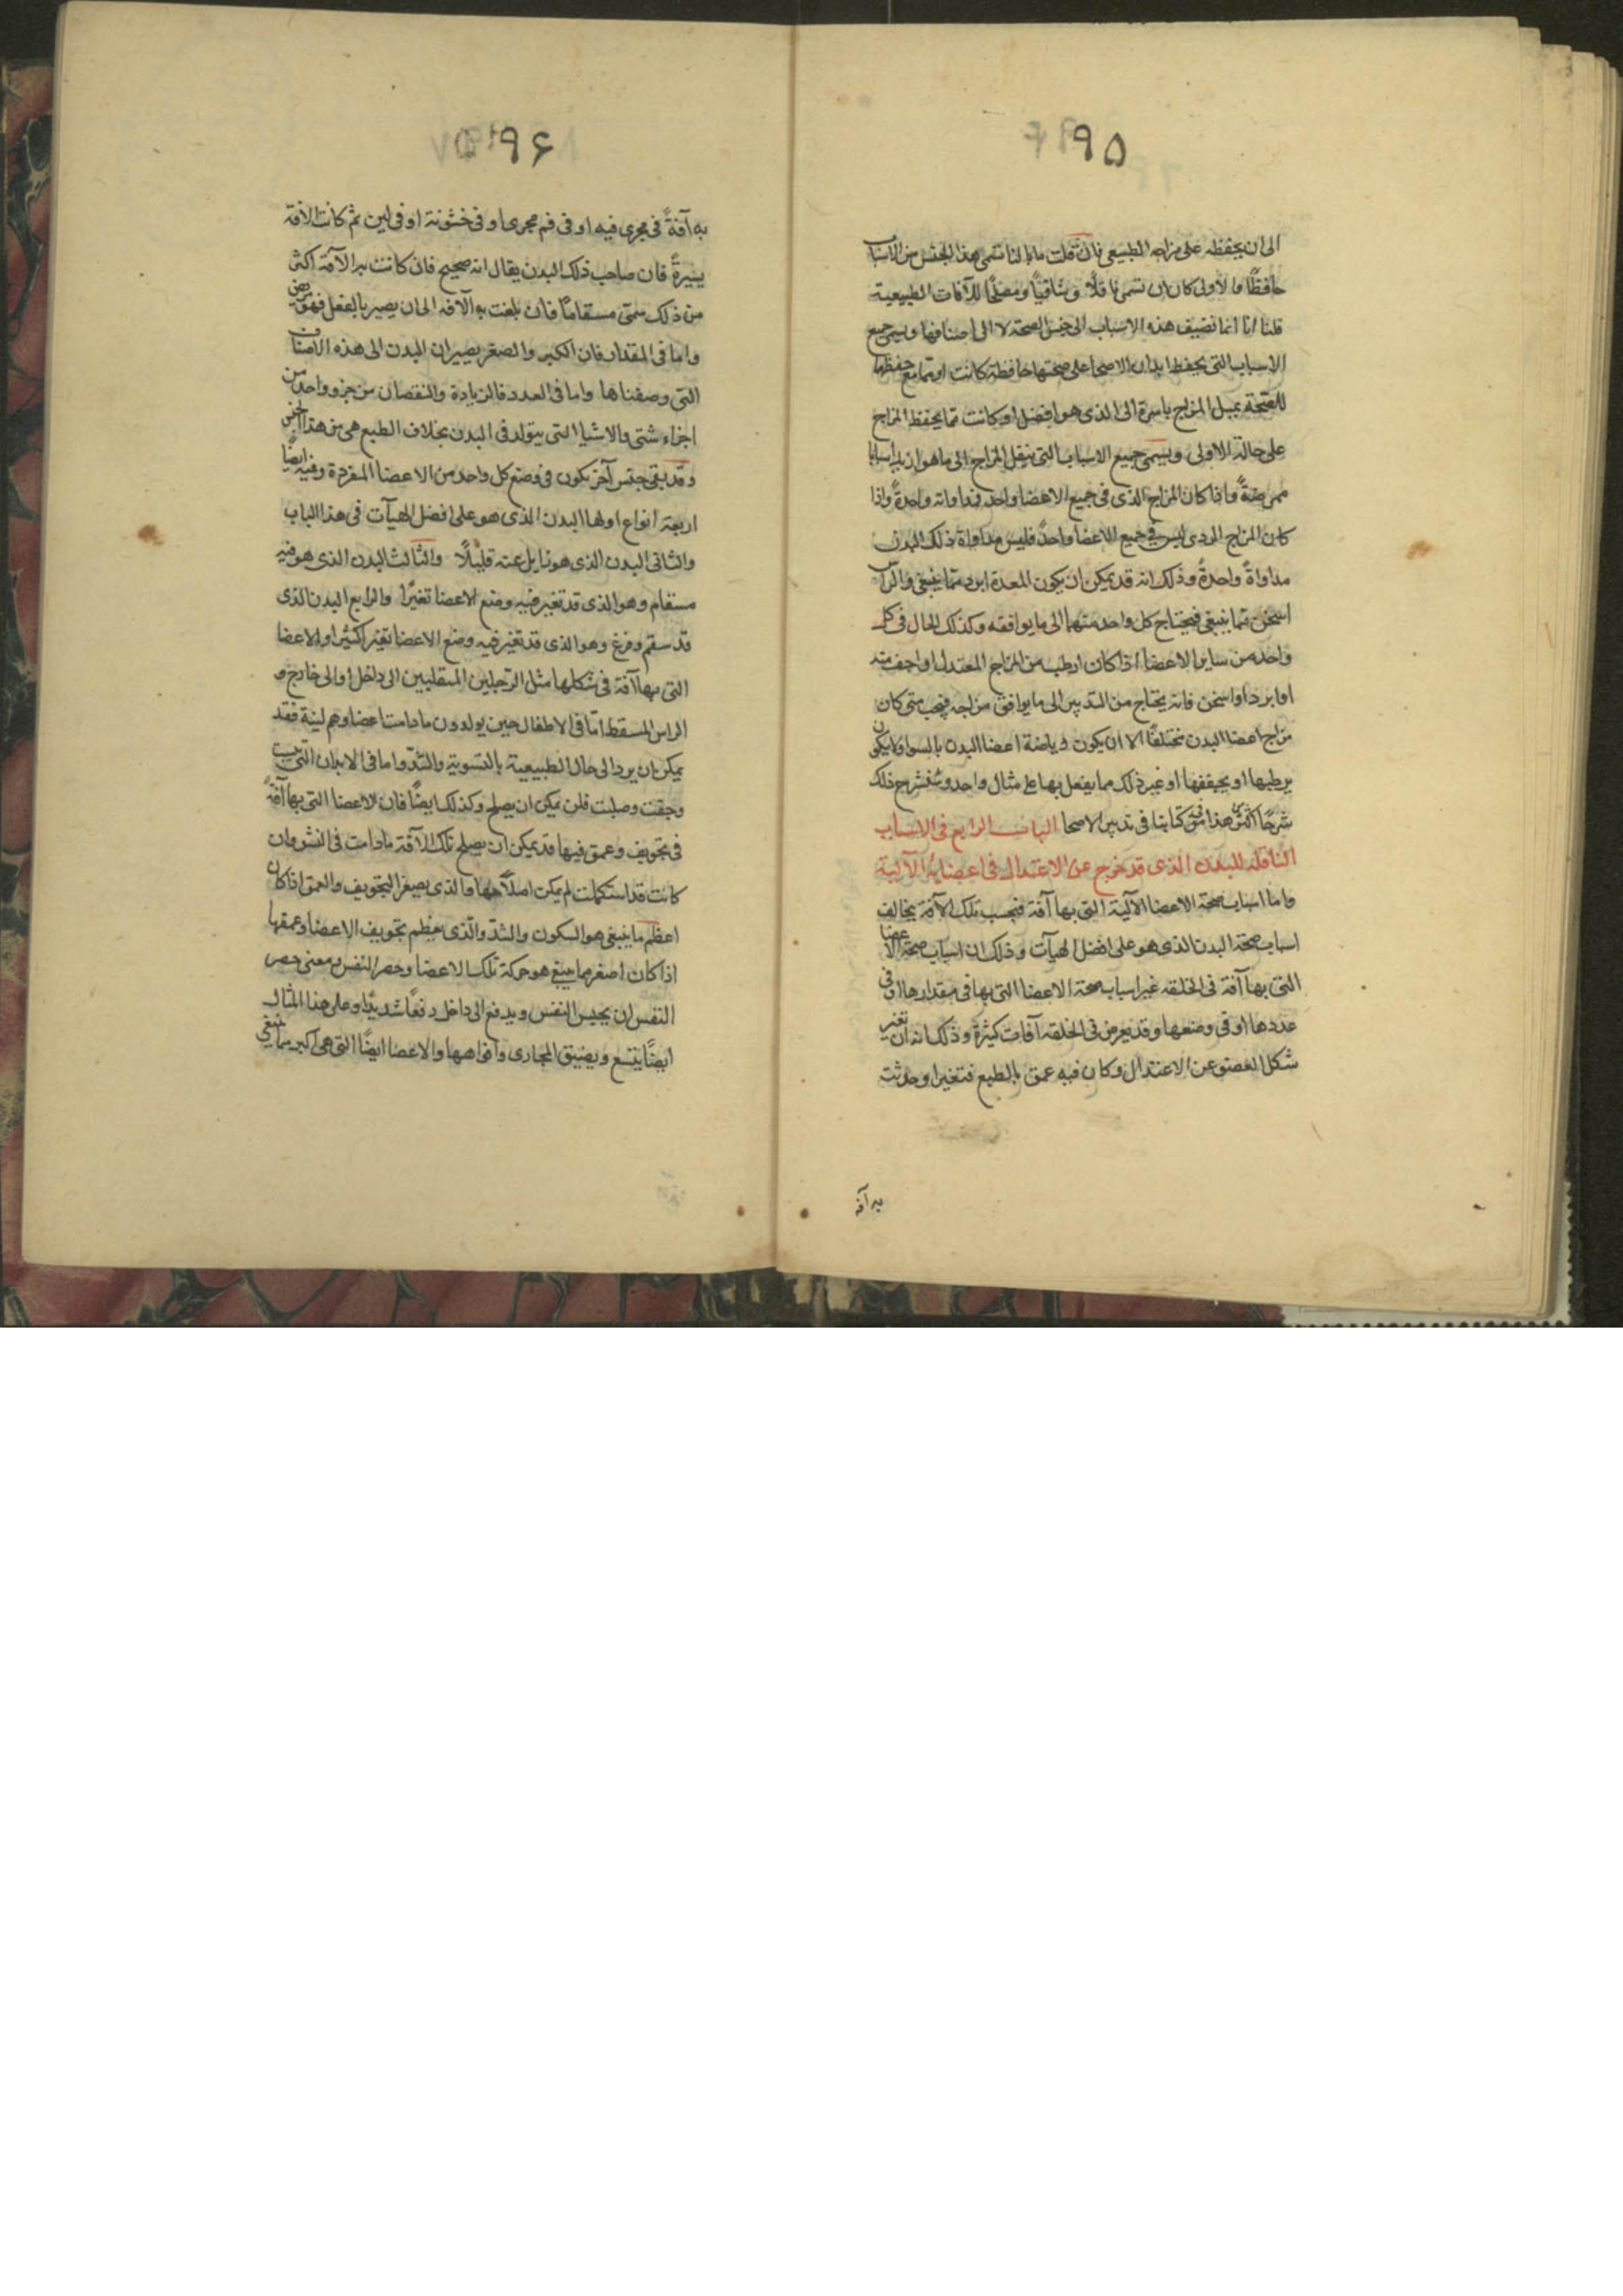 ٩٥
الى ان يحفظه على مزاجه الطبيعى فان قلت ما بالنا نسمى هذا الجنس من الاسباب
حافظًا والاولى كان ان نسمى ناقلًا وشافيًا ومصلحًا للآفات الطبيعية
قلنا انا انما نضيف هذه الاسباب الى جنس الصحة لا الى اصنافها ويسمى جميع
الاسباب التى يحفظ ابدان الاصحا على صحتها حافظة كانت او مما مع حفظها
للصحة يميل المزاج باسره الى الذى هو افضل او كانت مما يحفظ المزاج
على حالة الاولى ويسمى جميع الاسباب التى ينقل المزاج الى ما هو ازيد اسبابا
ممرضةً واذا كان المزاج الذى فى جميع الاعضا واحد فمداواته واحدةً واذا
كان المزاج الردى ليس فى جميع الاعضا واحدً فليس مداواة ذلك البدن
مداواةً واحدةً وذلك انه قد يمكن ان يكون المعدة ابرد مما ينبغى والراس
اسخن مما ينبغى فيحتاج كل واحد منهما الى ما يوافقه وكذلك الحال فى كل
واحد من ساير الاعضا اذا كان ارطب من المزاج المعتدل او اجف منه
او ابرد او اسخن فانه يحتاج من التدبير الى ما يوافق مزاجه فيجب متى كان
مزاج اعضا البدن مختلفًا الا ان يكون رياضة اعضا البدن بالسوا ولا يكون
يرطبها او يجففها او غير ذلك مما يفعل بها على مثال واحد وسنشرح ذلك
شرحًا اكثر من هذا فى كتابنا فى تدبير الاصحا الباب الرابع فى الاسباب
الناقله للبدن الذى قد خرج عن الاعتدال فى اعضايه الآلية
واما اسباب صحة الاعضا الآلية التى بها آفة فبحسب تلك الآفة يخالف
اسباب صحة البدن الذى هو على افضل الهيآت وذلك ان اسباب صحة الاعضا
التى بها آفة فى الخلقه غير اسباب صحة الاعضا التى بها فى مقدارها او فى
عددها او فى وضعها وقد يعرض فى الخلقه آفات كثيرة وذلك انه ان تغير
شكل العضو عن الاعتدال وكان فيه عمق بالطبع فتغير او حدثت
به آفة
٩٦
به آفةً فى مجرى فيه او فى فم مجرى او فى خشونة او فى لين ثم كانت الافة
يسيرةً فان صاحب ذلك البدن يقال انه صحيح فان كانت به الآفة اكثر
من ذلك سمّى مسقامًا فان بلغت به الآفه الى ان يصير بالفعل فهو مرض
واما فى المقدار فان الكبر والصغر يصيران البدن الى هذه الاصناف
التى وصفناها واما فى العدد فالزيادة والنقصان من جزو واحد من
اجزاء شتى والاشيا التى يتولد فى البدن بخلاف الطبع هى من هذا الجنس
وقد بقى جنس آخر يكون فى وضع كل واحد من الاعضا المفردة وفيه ايضًا
اربعة انواع اولها البدن الذى هو على افضل الهيآت فى هذا الباب
والثانى البدن الذى هو زايل عنه قليلًا والثالث البدن الذى هو فيه
مسقام وهو الذى قد تغير فيه وضع الاعضا تغيرًا والرابع البدن الذى
قد سقم وفرغ وهو الذى قد تغير فيه وضع الاعضا تغير اكثيرا والاعضا
التى بها آفة فى شكلها مثل الرجلين المنقلبين الى داخل او الى خارج و
الراس المسقط امّا فى الاطفال حين يولدون ما دامت اعضاوهم لينة فقد
يمكن ان يرد الى حال الطبيعية بالتسوية والشدّ واما فى الابدان التى يبست
وجفت وصلبت فلن يمكن ان يصلح وكذلك ايضًا فان الاعضا التى بها آفةً
فى تجويف وعمق فيها قد يمكن ان يصلح تلك الآفة ما دامت فى النشو وان
كانت قد استكملت لم يمكن اصلاحها والذى يصغر التجويف والعمق اذا كان
اعظم ما ينبغى هو السكون والشدّ والذى يعظم تجويف الاعضا وعمقها
اذا كان اصغر مما ينبغى هو حركة تلك الاعضا وحصر النفس ومعنى حصر
النفس ان يحبس النفس ويدفع الى داخل دفعًا شديدًا وعلى هذا المثال
ايضًا يتسع ويضيق المجارى وافواهها والاعضا ايضًا التى هى اكبر مما ينبغى